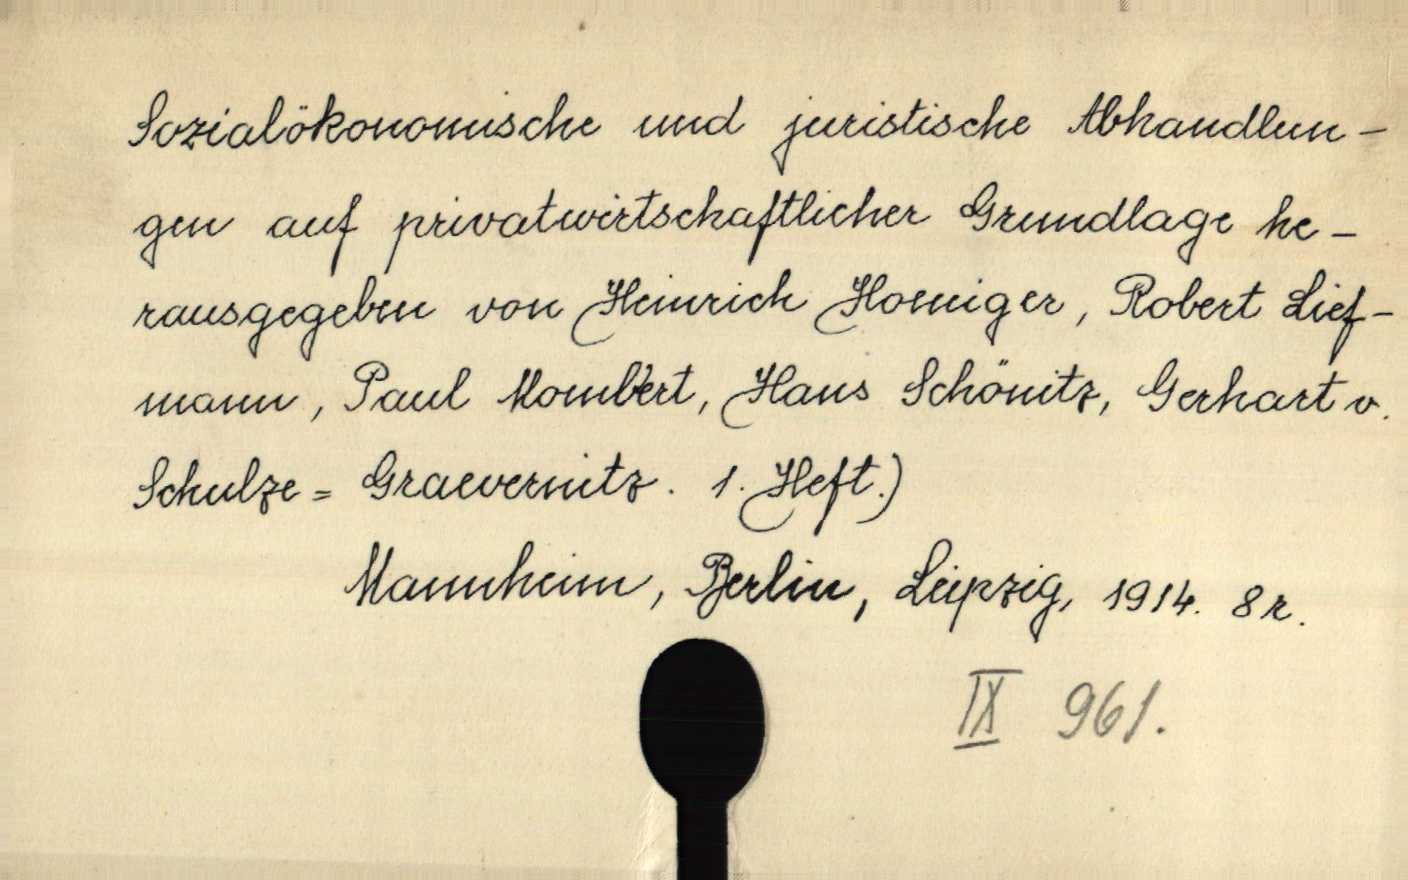 Sozialökonomische und juristische Abhandlun-
gen auf privatwirtschaftlicher Grundlage he-
rausgegeben von Heinrich Hoeniger, Robert Lief-
mann, Paul Mombert, Hans Schönitz, Gerhart v.
Schulze= Graevernitz. 1. Heft.)
Mannheim, Berlin, Leipzig, 1914. 8r.
IX 961.